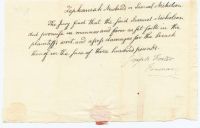 Zephaniah Hubbard vs Samuel Nicholson
The jury find that the said Samuel Nicholson
did promise in manner and form as set forth in the
plaintiffs writ and assess damages for the breach
thereof in the sum of three hundred pounds
Joseph Foster
Foreman